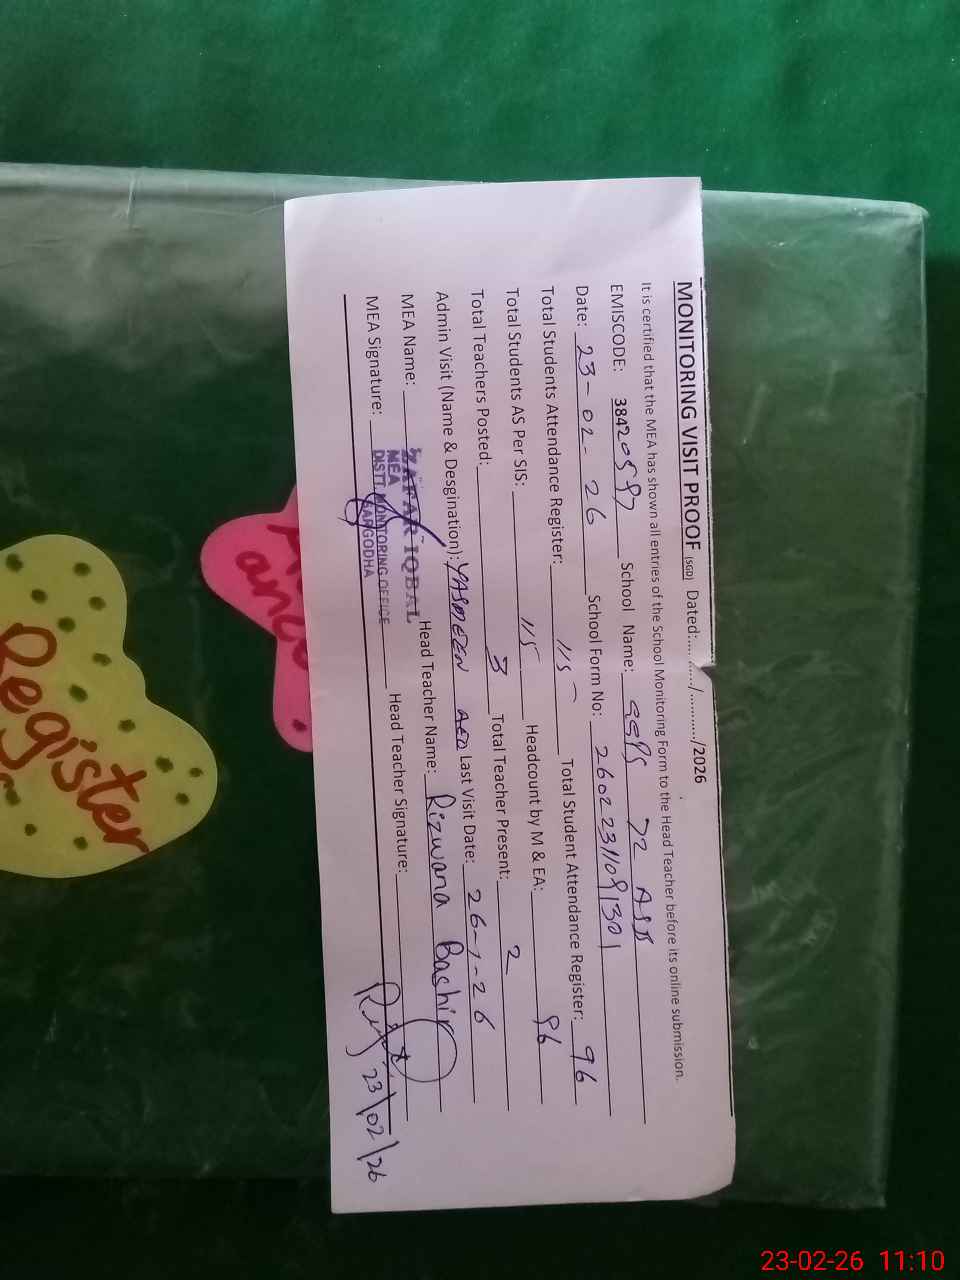 MONITORING VISIT PROOF (SGD) Dated:...../.........../2026
It is certified that the MEA has shown all entries of the School Monitoring Form to the Head Teacher before its online submission.
EMISCODE: 38420597 School Name: GGPS 72 ASB
Date: 23-02-26 School Form No: 26022311091301
Total Students Attendance Register: 115 Total Student Attendance Register: 96
Total Students AS Per SIS: 115 Headcount by M & EA: 96
Total Teachers Posted: 3 Total Teacher Present: 2
Admin Visit (Name & Desgination): YASMEEN AEO Last Visit Date: 26-1-26
MEA Name: ZAFAR IQBAL Head Teacher Name: Rizwana Bashir
MEA
DISTT MONITORING OFFICE
SARGODHA
MEA Signature: Head Teacher Signature:
23/02/26
Register
23-02-26 11:10